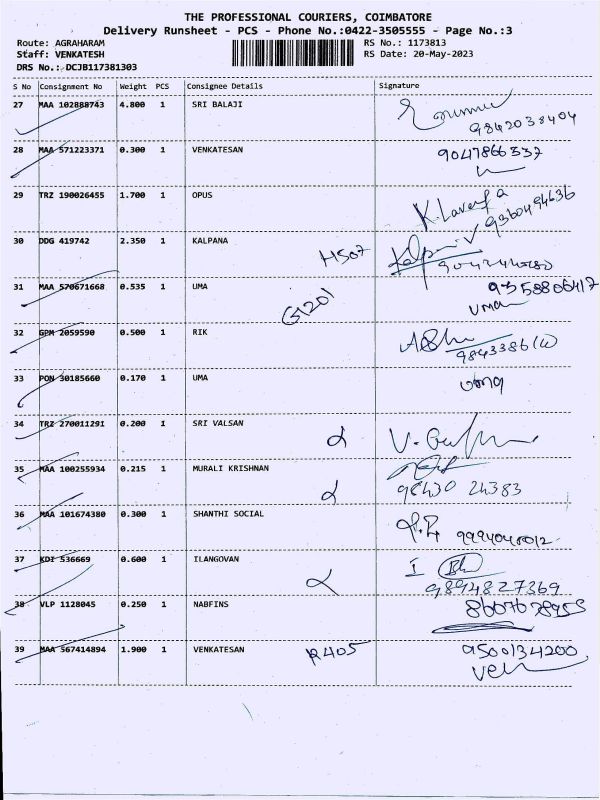 THE PROFESSIONAL COURIERS, COIMBATORE
Delivery Runsheet - PCS - Phone No.:0422-3505555 - Page No.:3
Route: AGRAHARAM RS No.: 1173813
Staff: VENKATESH RS Date: 20-May-2023
DRS No.: DCJB117381303
S No Consignment No Weight PCS Consignee Details Signature
27 MAA 102888743 4.800 1 SRI BALAJI
9842038404
28 MAA 571223371 0.300 1 VENKATESAN 9047866537
29 TRZ 190026455 1.700 1 OPUS
9360494636
30 DDG 419742 2.350 1 KALPANA H507
31 MAA 570671668 0.535 1 UMA 9358806417
G1201 uma
32 GPM 2059590 0.500 1 RIK
33 PON 30185660 0.170 1 UMA
34 TRZ 270011291 0.200 1 SRI VALSAN
35 MAA 100255934 0.215 1 MURALI KRISHNAN
98430 24383
36 MAA 101674380 0.300 1 SHANTHI SOCIAL
9994048012
37 KDI 536669 0.600 1 ILANGOVAN
9894827369
38 VLP 1128045 0.250 1 NABFINS
39 MAA 567414894 1.900 1 VENKATESAN R405 9500134200